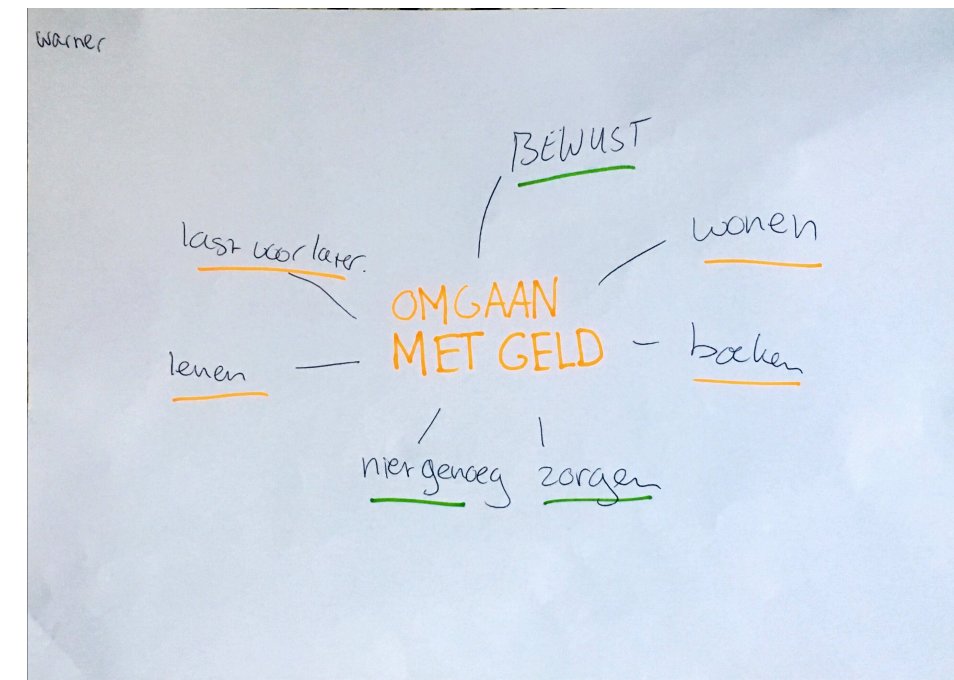 warner
BEWUST
wonen
last voor later.
OMGAAN
MET GELD
boeken
lenen
niet genoeg
zorgen